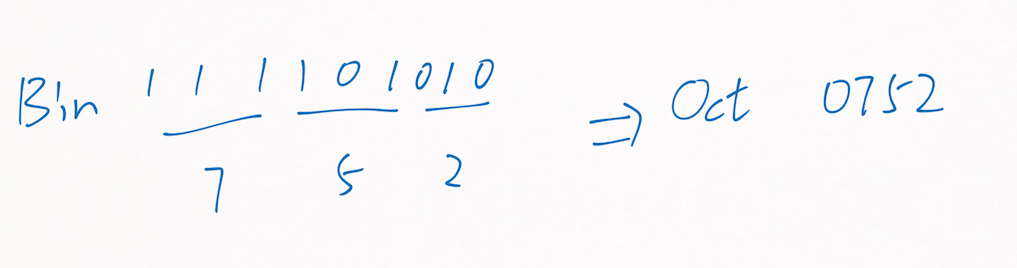 Bin 1 1 1 1 0 1 0 1 0 ⇒ Oct 0752
7 5 2